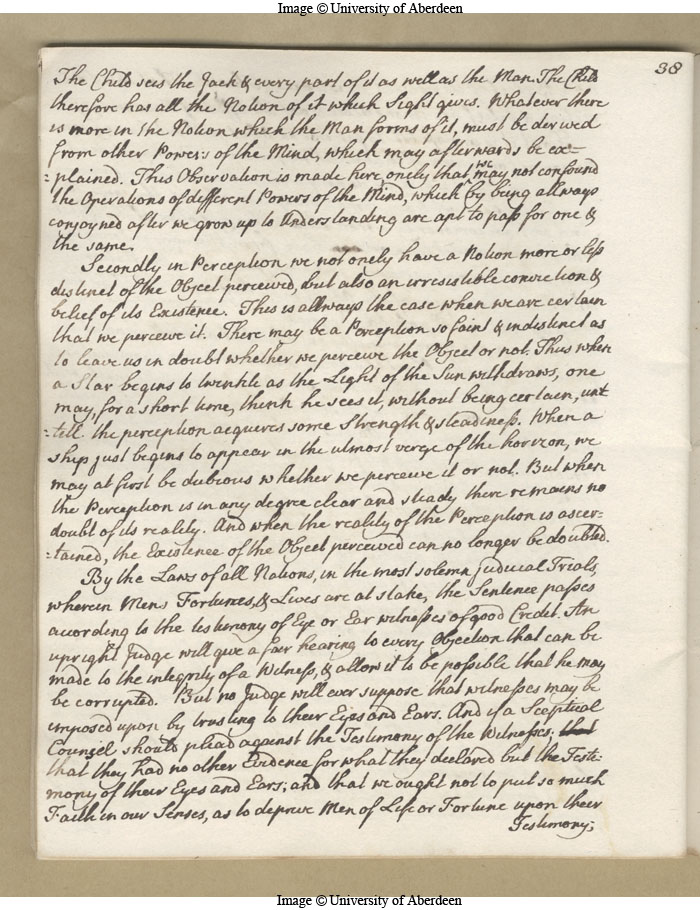 Image © University of Aberdeen
38
The Child sees the Jack & every part of it as well as the Man. The Child
therefore has all the Notion of it which Sight gives. Whatever there
is more in the Notion which the Man forms of it, must be derived
from other Powers of the Mind, which may afterwards be ex=
=plained. This Observation is made here, onely that we may not confound
the Operations of different Powers of the Mind, which by being allways
conjoyned after we grow up to Understanding are apt to pass for one &
the same.
Secondly in Perception we not onely have a Notion more or less
distinct of the Object perceived, but also an irresistible conviction &
belief of its Existence. This is allways the case when we are certain
that we perceive it. There may be a Perception so faint & indistinct as
to leave us in doubt whether we perceive the Object or not. Thus when
a Star begins to twinkle as the Light of the Sun withdraws, one
may, for a short time, think he sees it, without being certain, unt
=till the perception acqueres some Strength & steadiness. When a
ship just begins to appear in the utmost verge of the horizon, we
may at first be dubious whether we perceive it or not. But when
the Perception is in any degree clear and steady there remains no
doubt of its reality. And when the reality of the Perception is ascer=
=tained, the Existence of the Object perceived can no longer be doubted.
By the Laws of all Nations, in the most solemn judicial Trials,
wherein Mens Fortunes, & Lives are at stake, the Sentence passes
according to the testimony of Eye or Ear witnesses of good Credit. An
upright Judge will give a fair hearing to every Objection that can be
made to the integrity of a Witness, & allow it to be possible that he may
be corrupted. But no Judge will ever suppose that witnesses may be
imposed upon by trusting to their Eyes and Ears. And if a Sceptical
Counsel should plead against the Testimony of the Witnesses; that
that they had no other Evidence for what they declared but the Testi=
mony of their Eyes and Ears; and that we ought not to put so much
Faith in our Senses, as to deprive Men of Life or Fortune upon their
Testimony;
Image © University of Aberdeen